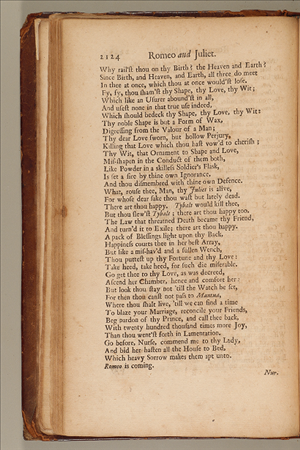 2124 Romeo and Juliet.
Why rail'st thou on thy Birth? the Heaven and Earth?
Since Birth, and Heaven, and Earth, all three do meet
In thee at once, which thou at once would'st lose.
Fy, fy, thou sham'st thy Shape, thy Love, thy Wit;
Which like an Usurer abound'st in all,
And usest none in that true use indeed,
Which should bedeck thy Shape, thy Love, thy Wit:
Thy noble Shape is but a Form of Wax,
Digressing from the Valour of a Man;
Thy dear Love sworn, but hollow Perjury,
Killing that Love which thou hast vow'd to cherish;
Thy Wit, that Ornament to Shape and Love,
Mis-shapen in the Conduct of them both,
Like Powder in a skilless Soldier's Flask,
Is set a fire by thine own Ignorance,
And thou dismembred with thine own Defence.
What, rouse thee, Man, thy Juliet is alive,
For whose dear sake thou wast but lately dead.
There art thou happy. Tybalt would kill thee,
But thou slew'st Tybalt; there art thou happy too.
The Law that threatned Death became thy Friend,
And turn'd it to Exile; there art thou happy.
A pack of Blessings light upon thy Back,
Happiness courts thee in her best Array,
But like a mis-hav'd and a sullen Wench,
Thou puttest up thy Fortune and thy Love:
Take heed, take heed, for such die miserable.
Go get thee to thy Love, as was decreed,
Ascend her Chamber, hence and comfort her:
But look thou stay not 'till the Watch be set,
For then thou canst not pass to Mantua,
Where thou shalt live, 'till we can find a time
To blaze your Marriage, reconcile your Friends,
Beg pardon of thy Prince, and call thee back,
With twenty hundred thousand times more Joy,
Than thou went'st forth in Lamentation.
Go before, Nurse, commend me to thy Lady,
And bid her hasten all the House to Bed,
Which heavy Sorrow makes them apt unto.
Romeo is coming.
Nur.